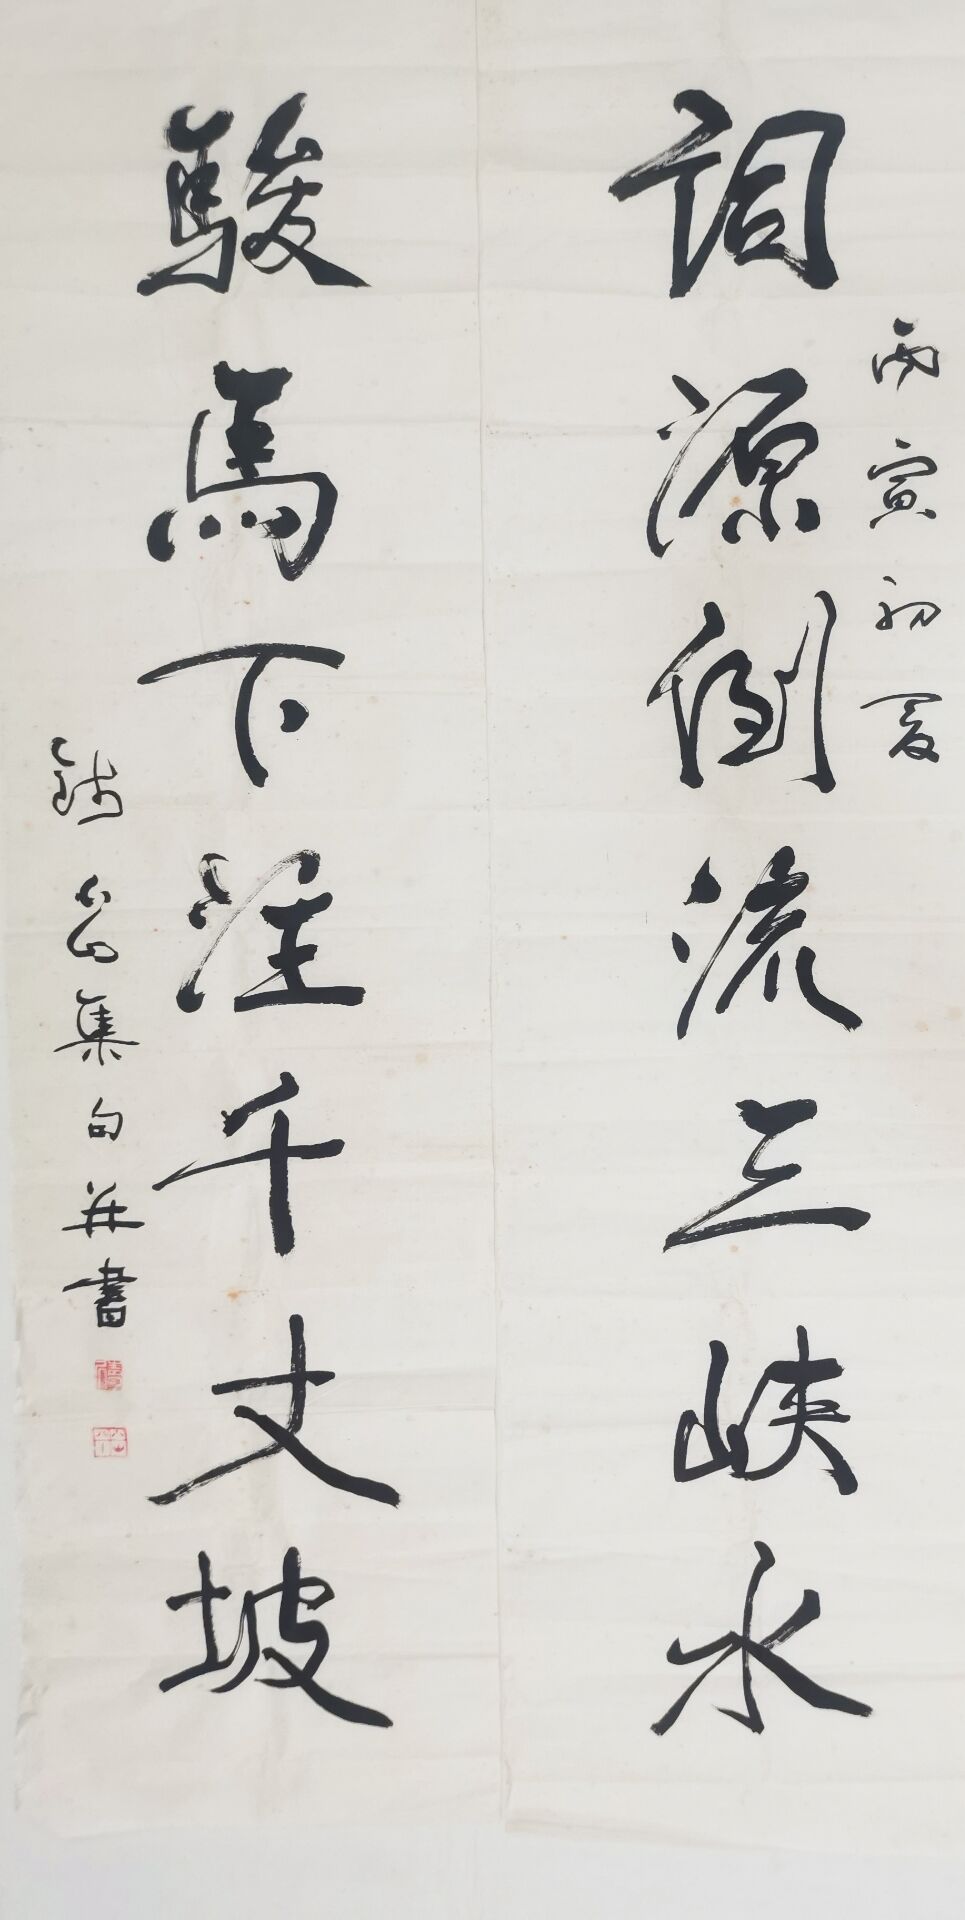 丙寅初夏
詞源倒流三峽水
駿馬下注千丈坡
集句并書